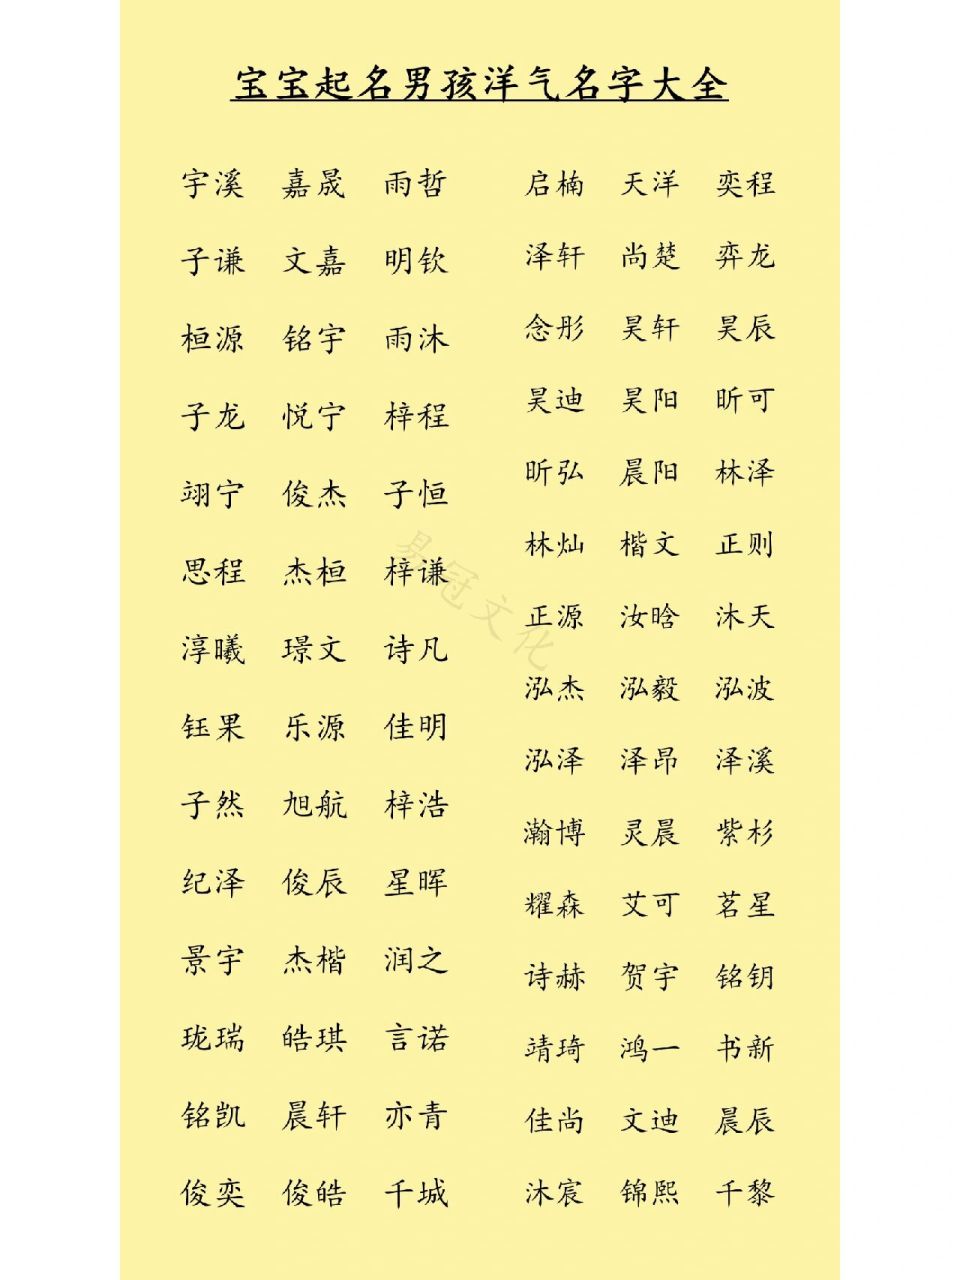 宝宝起名男孩洋气名字大全
宇溪 嘉晟 雨哲
子谦 文嘉 明钦
桓源 铭宇 雨沐
子龙 悦宁 梓程
翊宁 俊杰 子恒
思程 杰桓 梓谦
淳曦 璟文 诗凡
钰果 乐源 佳明
子然 旭航 梓浩
纪泽 俊辰 星晖
景宇 杰楷 润之
珑瑞 皓琪 言诺
铭凯 晨轩 亦青
俊奕 俊皓 千城
启楠 天洋 奕程
泽轩 尚楚 弈龙
念彤 昊轩 昊辰
昊迪 昊阳 昕可
昕弘 晨阳 林泽
林灿 楷文 正则
正源 汝晗 沐天
泓杰 泓毅 泓波
泓泽 泽昂 泽溪
瀚博 灵晨 紫杉
耀森 艾可 茗星
诗赫 贺宇 铭钥
靖琦 鸿一 书新
佳尚 文迪 晨辰
沐宸 锦熙 千黎
易冠文化